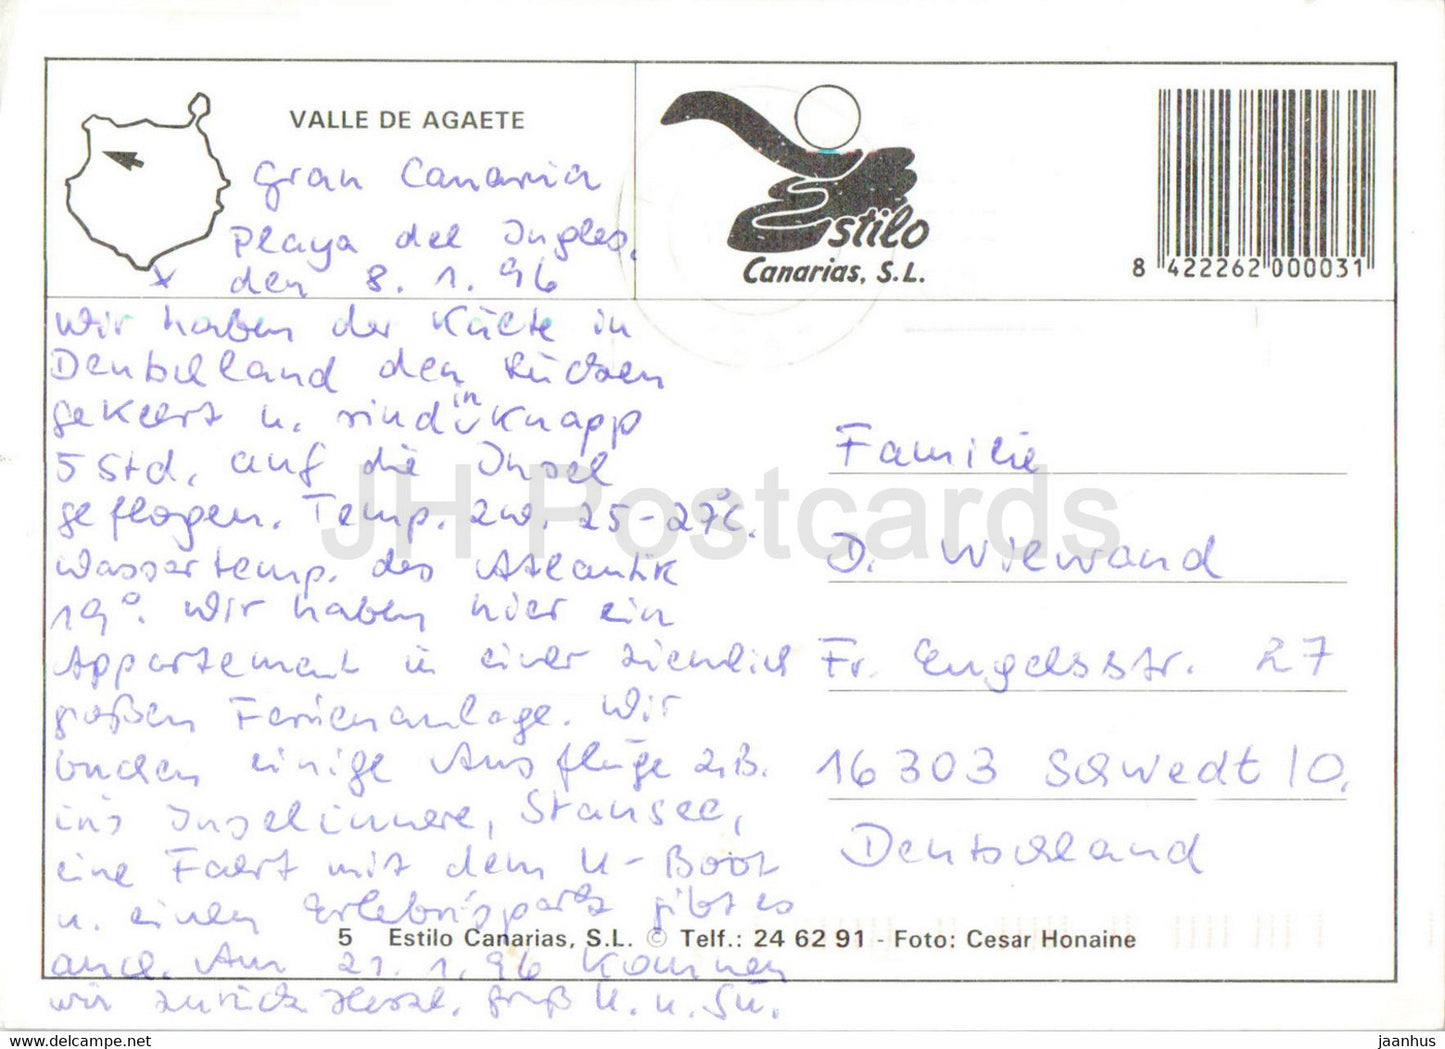 VALLE DE AGAETE
Gran Canaria
Playa del Ingles,
x den 8. 1. 96
Estilo
Canarias, S.L.
8 422262 000031
Wir haben der Kälte in
Deutschland den Rücken
gekeert u. sind in knapp
5 Std. auf die Insel
geflogen. Temp. zw. 25-27°C.
Wassertemp. des Atlantik
19°. Wir haben hier ein
Appartement in einer ziemlich
großen Ferienanlage. Wir
buchen einige Ausflüge z.B.
ins Inselinnere, Stausee,
eine Faert mit dem U-Boot
u. einen Erlebnispark gibt es
auch. Am 21.1.96 kommen
wir zurück. Herzl. Gruß U. u. Su.
Familie
D. Wiewand
Fr. Engelsstr. 27
16303 Schwedt / O.
Deutschland
5 Estilo Canarias, S.L. © Telf.: 24 62 91 - Foto: Cesar Honaine
JH Postcards
www.delcampe.net
jaanhus